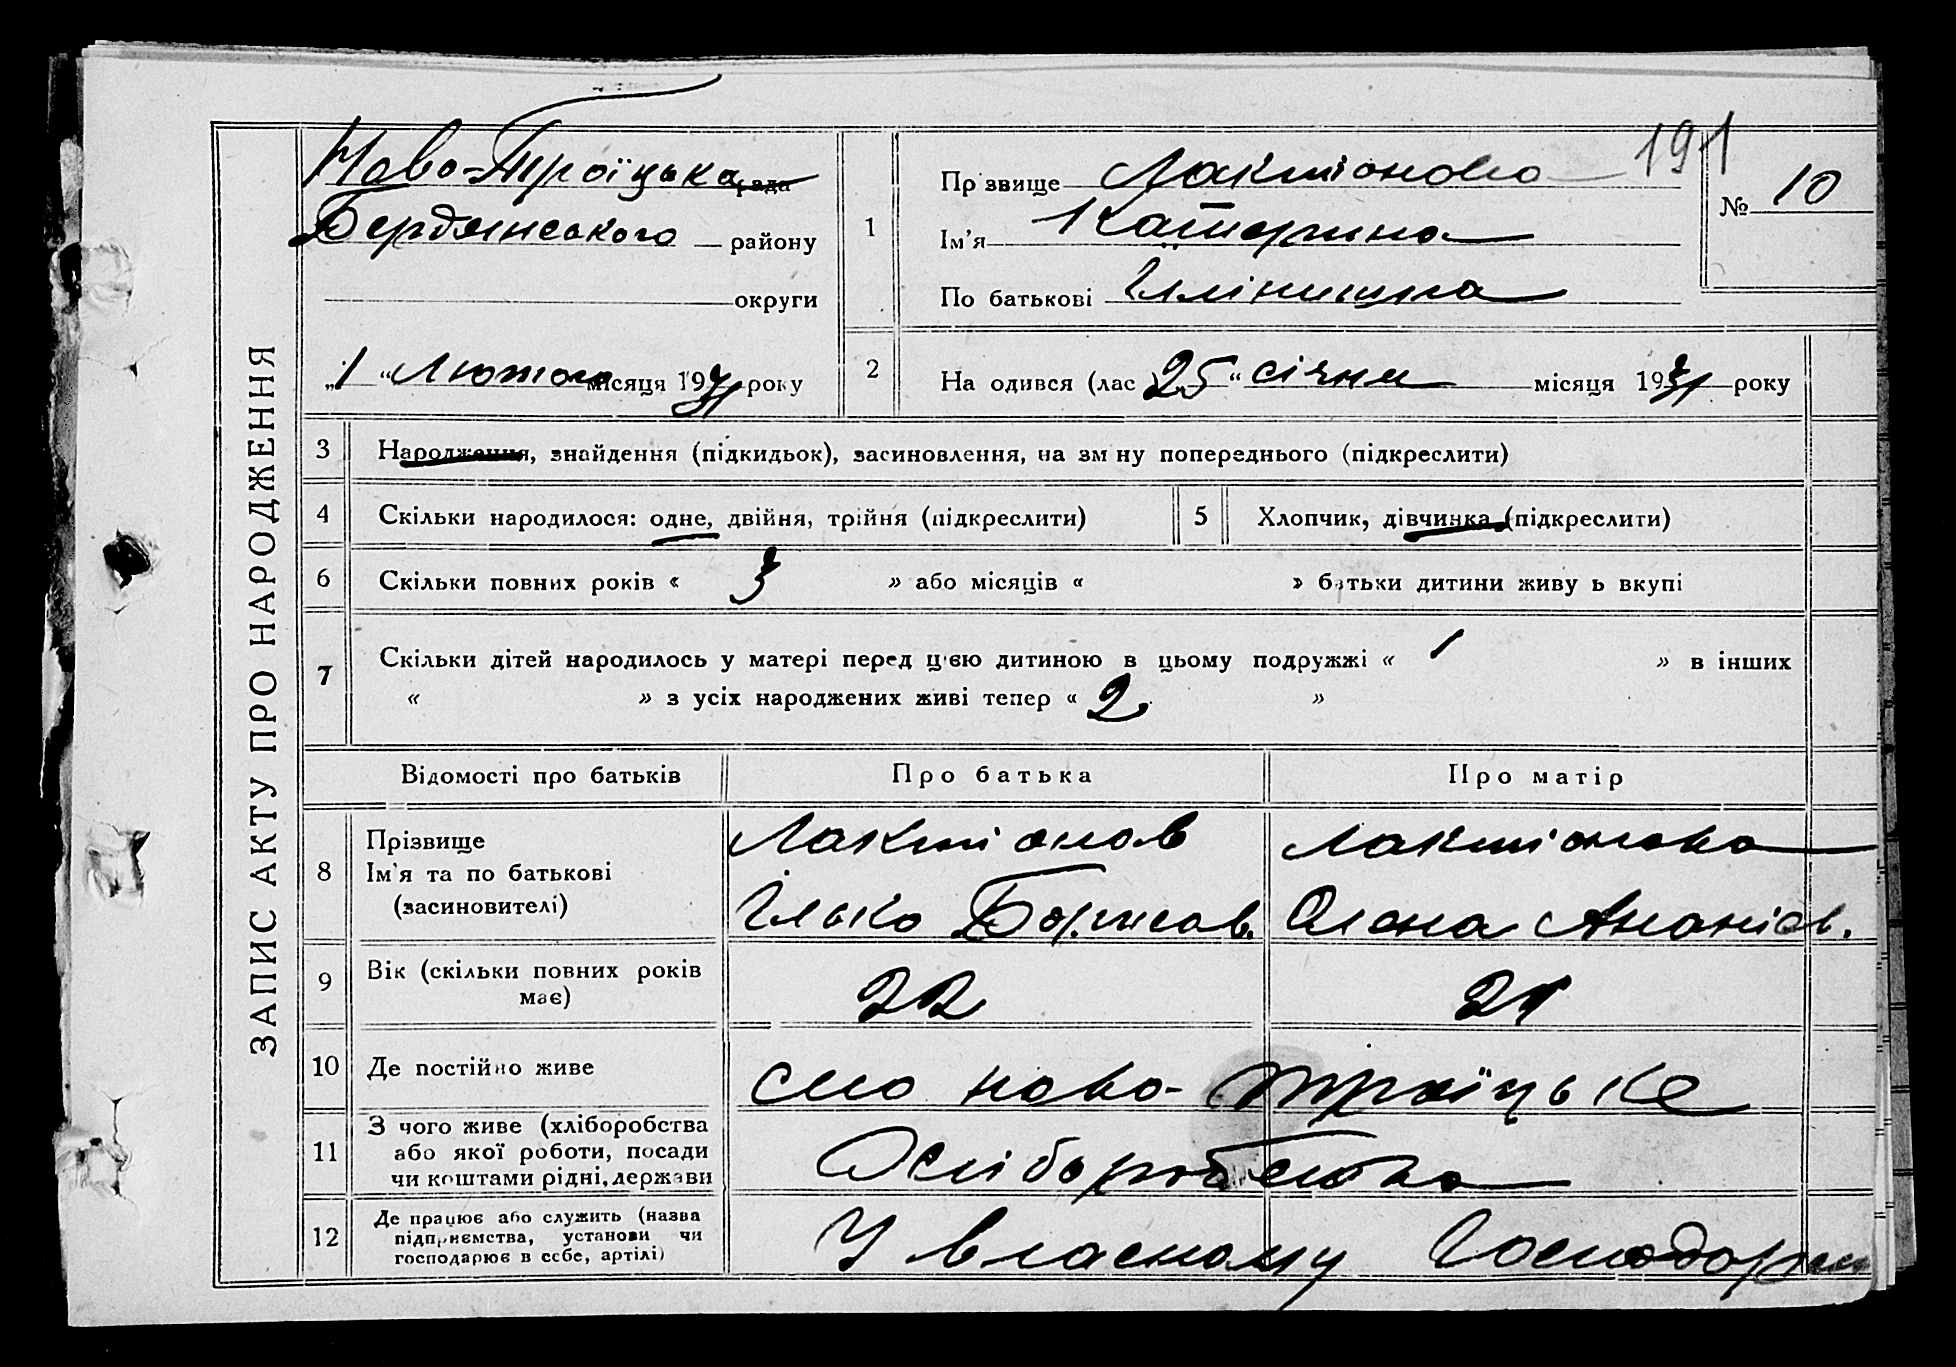 ЗАПИС АКТУ ПРО НАРОДЖЕННЯ
Ново-Троїцька рада
Бердянського району
округи
„1“ Лютого місяця 1931 року
1
Прізвище Лактіонова
191
№ 10
Ім'я Катерина
По батькові Іллінишна
2
На одився (лас ) 25 “ січня місяця 1931 року
3 Народження, знайдення (підкидьок), засиновлення, на зм ну попереднього (підкреслити)
4 Скільки народилося: одне, двійня, трійня (підкреслити)
5 Хлопчик, дівчинка (підкреслити)
6 Скільки повних років « 3 » або місяців « » батьки дитини живу ь вкупі
7 Скільки дітей народилось у матері перед цією дитиною в цьому подружжі « 1 » в інших
« » з усіх народжених живі тепер « 2 »
Відомості про батьків Про батька Про матір
8 Прізвище Лактіонов Лактіонова
Ім'я та по батькові
(засиновителі) Ілько Борисов. Олена Ананіев.
9 Вік (скільки повних років
має) 22 21
10 Де постійно живе село Ново-Троїцьке
11 З чого живе (хліборобства
або якої роботи, посади
чи коштами рідні, держави
Хліборобства
12 Де працює або служить (назва
підприємства, установи чи
господарює в себе, артілі)
У власному Господарстві